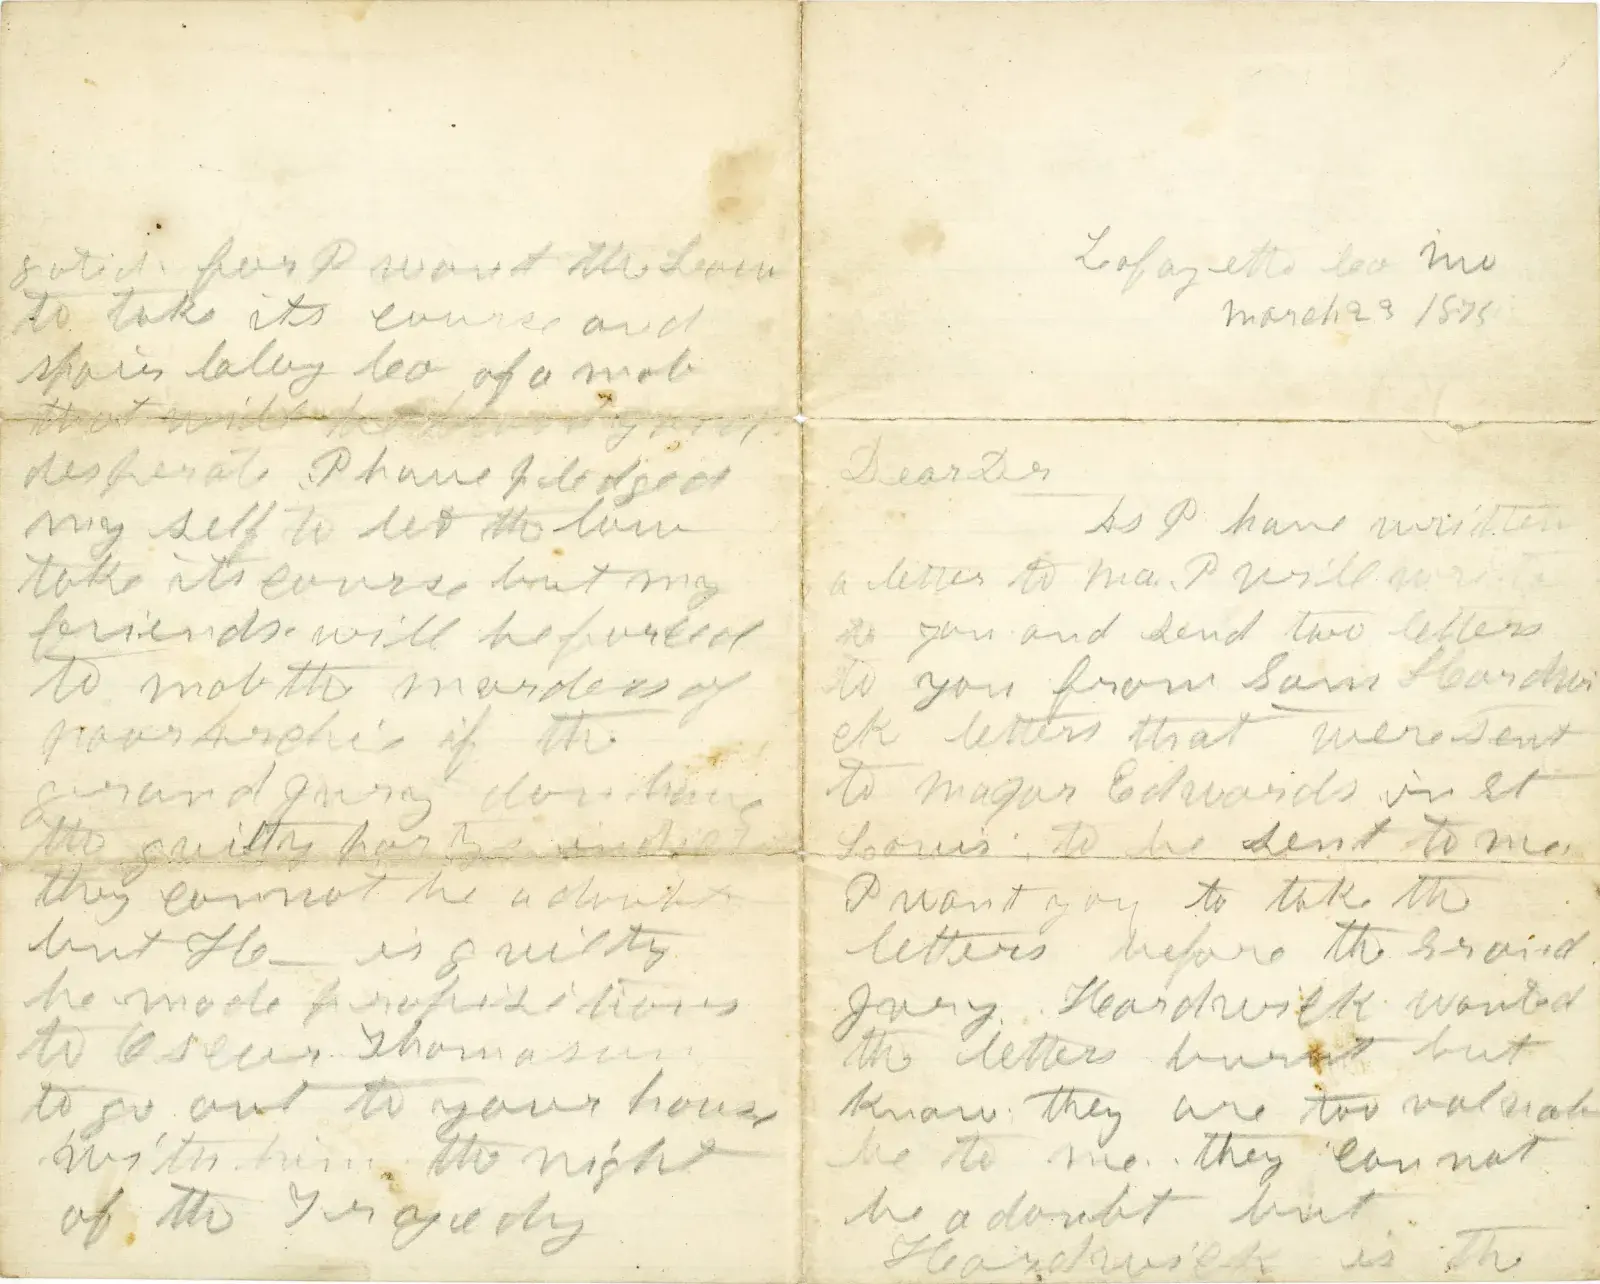 Lafayette Co Mo
March 23 1875
Dear Dr
As I have written
a letter to Ma. I will write
to you and send two letters
to you from Sam Hardwi
ck letters that were sent
to Magor Edwards in St
Louis. to be sent to me.
I want you to take the
letters before the Grand
Jury. Hardwick wanted
the letters burnt but
know they are too valuab
le to me. they cannot
be a doubt but
Hardwick is the
for I want the Law
to take its course and
spair Clay Co of a mob
that will be bloody and
desperate I have pledged
my self to let the law
take its course but my
friends will be forced
to mob the murders of
poor Archie if the
grand Jury don have
the guilty partys indict
they cannot be a doubt
but H is guilty
he made propisitions
to Oscur Thomasun
to go out to your house
with him the night
of the Tragedy